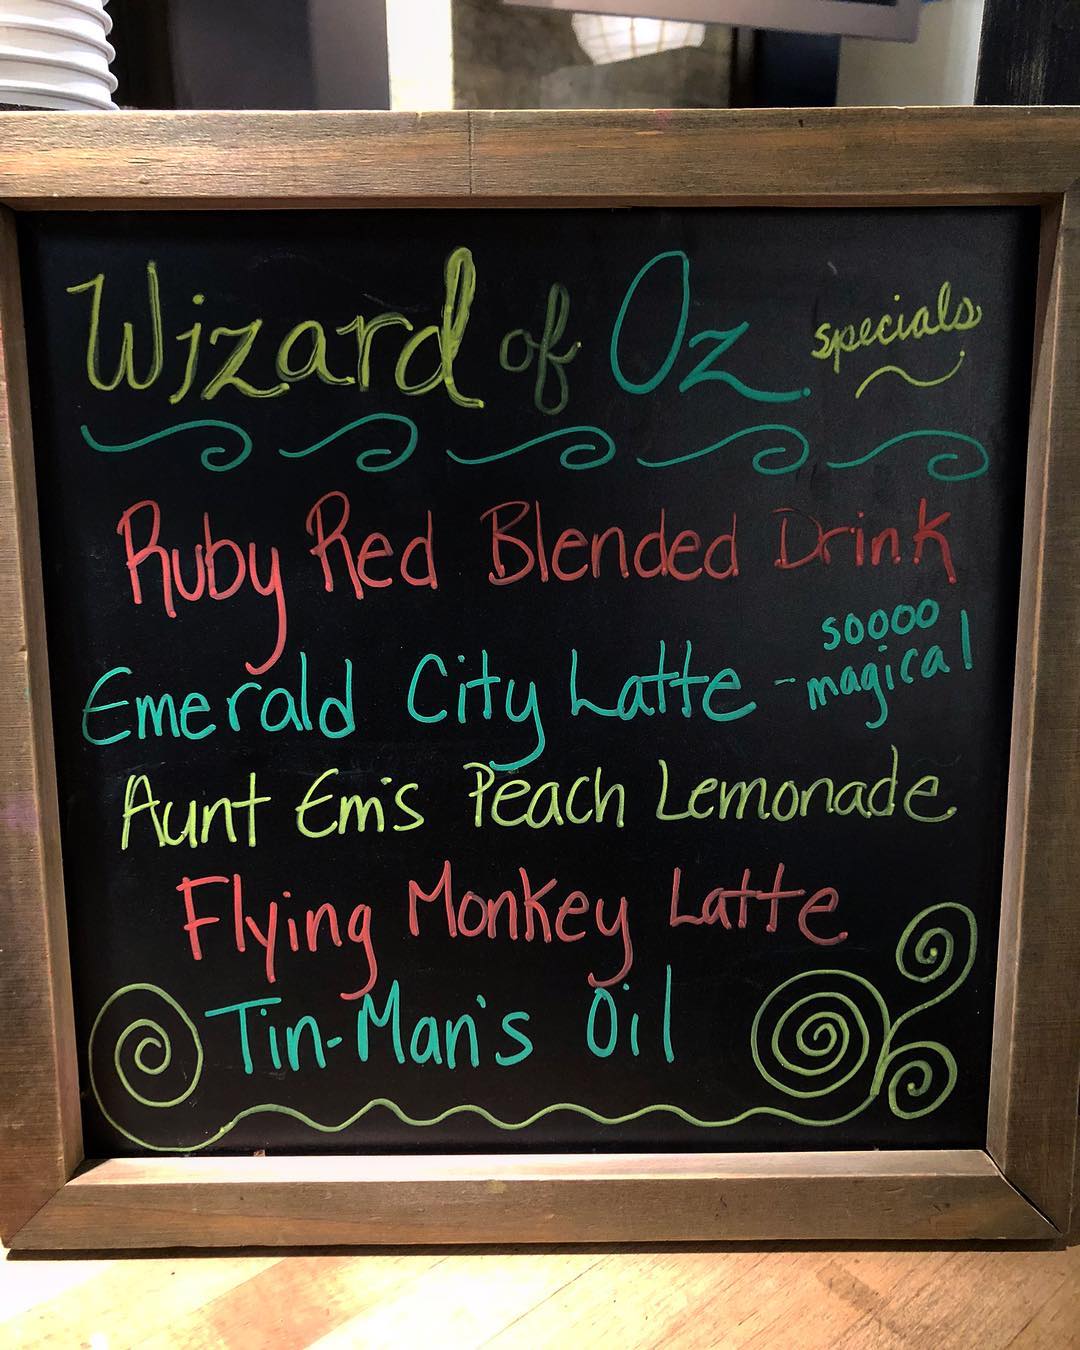 Wizard of Oz specials
Ruby Red Blended Drink
Emerald City Latte - soooo
magical
Aunt Em's Peach Lemonade
Flying Monkey Latte
Tin-Man's Oil